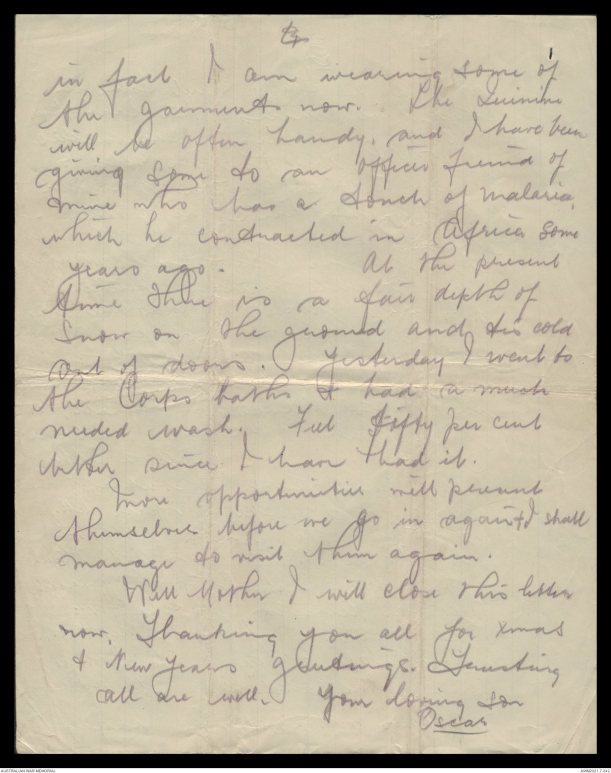 in fact I am wearing some of
the garments now. The Quinine
will be often handy, and I have been
giving some to an officer friend of
mine who has a touch of malaria,
which he contracted in Africa some
years ago. At the present
time there is a fair depth of
snow on the ground and tis cold
out of doors. Yesterday I went to
the Corps baths & had a much
needed wash. Feel fifty per cent
better since I have had it.
More opportunities will present
themselves before we go in again & I shall
manage to visit them again.
Well Mother I will close this letter
now. Thanking you all for xmas
& New Years greetings. Trusting
all are well. Your loving son
Oscar
AUSTRALIAN WAR MEMORIAL